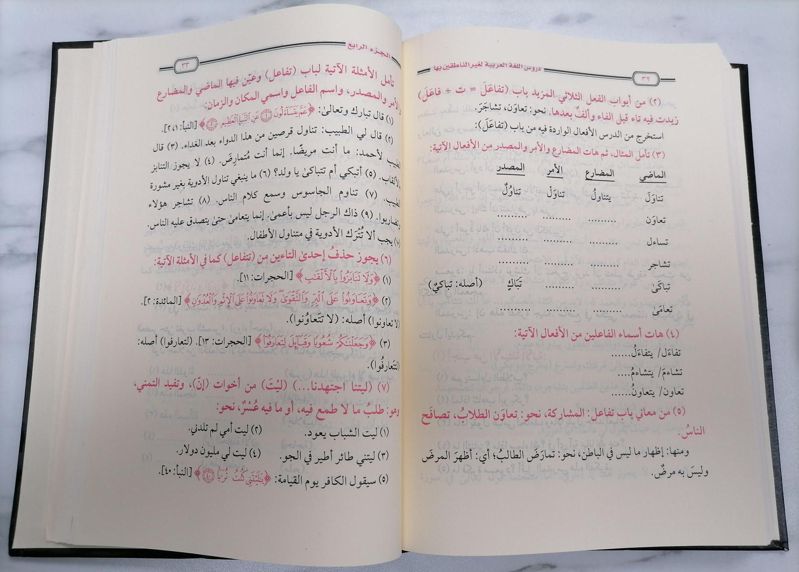 ٣٢
دروس اللغة العربية لغير الناطقين بها
(٢) من أبواب الفعل الثلاثي المزيد باب (تفاعَلَ = ت + فاعَلَ)
زيدت فيه تاء قبل الفاء وألفٌ بعدها، نحو: تعاوَن، تشاجَرَ.
استخرج من الدرس الأفعال الواردة فيه من باب (تفاعَلَ):
(٣) تأمل المثال، ثم هات المضارع والأمر والمصدر من الأفعال الآتية:
الماضي المضارع الأمر المصدر
تناوَلَ يتناولُ تناوَلْ تناوُلٌ
تعاوَن ......... ......... .........
تساءل ......... ......... .........
تشاجر ......... ......... .........
تباكَى ......... ......... تَباكٍ (أصله: تباكيٌ)
تعامَى ......... ......... .........
(٤) هات أسماء الفاعلين من الأفعال الآتية:
تفاءَل/ يتفاءَلُ......
تشاءمَ/ يتشاءمُ.....
تعاون/ يتعاونُ......
(٥) من معاني باب تفاعل: المشاركة، نحو: تعاوَن الطلابُ، تصافَح
الناسُ.
ومنها: إظهار ما ليس في الباطن، نحو: تمارَضَ الطالبُ؛ أي: أظهرَ المرضَ
وليسَ به مرضٌ.
الجزء الرابع
٣٣
تأمل الأمثلة الآتية لباب (تفاعل) وعيّن فيها الماضي والمضارع
والأمر والمصدر، واسم الفاعل واسمي المكان والزمان:
(١) قال تبارك وتعالى: ﴿عَمَّ يَتَسَاءَلُونَ ۝ عَنِ النَّبَإِ الْعَظِيمِ ۝﴾ [النبأ: ١، ٢].
(٢) قال لي الطبيب: تناول قرصين من هذا الدواء بعد الغداء. (٣) قال
لأحمد: ما أنت مريضًا. إنما أنت مُتمارضٌ. (٤) لا يجوز التنابز
بالألقاب. (٥) أتبكي أم تتباكى يا ولد؟ (٦) ما ينبغي تناول الأدوية بغير مشورة
(٧) تناوم الجاسوس وسمع كلام الناس. (٨) تشاجر هؤلاء
(٩) ذاك الرجل ليس بأعمىٰ. إنما يتعامىٰ حتىٰ يتصدق عليه الناس.
يجب ألا تُتْرَك الأدوية في متناول الأطفال.
(٦) يجوز حذفُ إحدىٰ التاءين من (تتفاعل) كما في الأمثلة الآتية:
(١) ﴿وَلَا تَنَابَزُوا بِالْأَلْقَابِ﴾ [الحجرات: ١١].
(٢) ﴿وَتَعَاوَنُوا عَلَى الْبِرِّ وَالتَّقْوَىٰ وَلَا تَعَاوَنُوا عَلَى الْإِثْمِ وَالْعُدْوَانِ﴾ [المائدة: ٢].
تعاونوا) أصله: (لا تتَعاوَنُوا).
(٣) ﴿وَجَعَلْنَاكُمْ شُعُوبًا وَقَبَائِلَ لِتَعَارَفُوا﴾ [الحجرات: ١٣]. (لتعارفوا) أصله:
(لتتعارفُوا).
(٧) (ليتنا اجتهدنا...) (ليْتَ) من أخوات (إنَّ)، وتفيد التمني،
وهو: طلبُ ما لا طمع فيه، أو ما فيه عُسْرٌ، نحو:
(١) ليت الشباب يعود. (٢) ليت أمي لم تلدني.
(٣) ليتني طائر أطير في الجو. (٤) ليت لي مليون دولار.
(٥) سيقول الكافر يوم القيامة: ﴿يَا لَيْتَنِي كُنتُ تُرَابًا﴾ [النبأ: ٤٠].